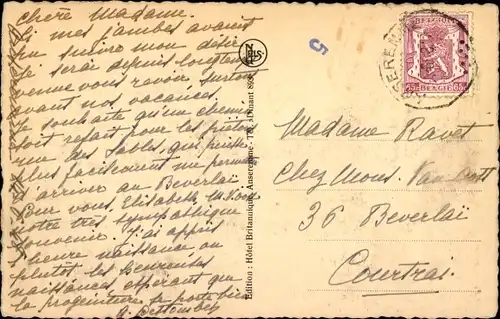 Chère Madame.
Si mes jambes avaient
pu suivre mon désir
je serai depuis longtemps
venue vous revoir surtout
avant nos vacances.
Je souhaite qu'un chemin
soit refait pour les piétons
rue des Sables, qui puisse
plus facilement me permettre
d'arriver au Beverlaï
Pour vous, Elisabeth
notre très sympathique
souvenir. J'ai appris
l'heure naissance ou
plutôt les heureuses
naissances, espérant que
la progéniture se porte bien
NELS
Edition : Hôtel Britannique, Anseremme
5
BELGIE
Madame Ravet
Chez Mons.
36 Beverlaï
Courtrai